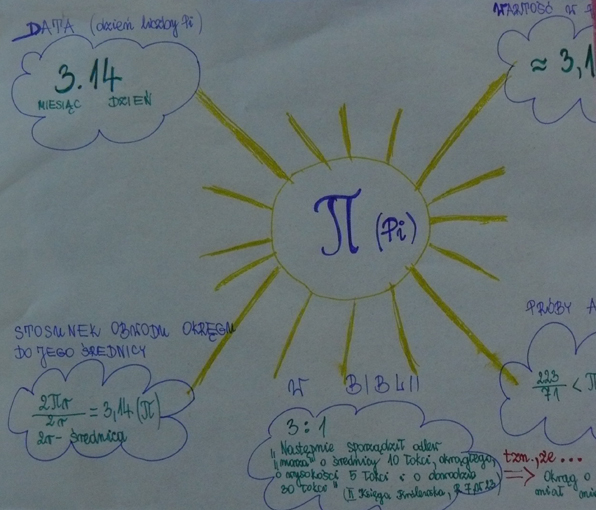 DATA (dzień liczby Pi)
3.14
MIESIĄC DZIEŃ
WARTOŚĆ W
≈ 3,1
Π (Pi)
STOSUNEK OBWODU OKRĘGU
DO JEGO ŚREDNICY
2Πr/2r = 3,14 (Π)
2r - średnica
W BIBLII
3:1
"Następnie sporządził odlew
"morza" o średnicy 10 łokci, okrągłego,
o wysokości 5 łokci i o obwodzie
30 łokci" (II Księga Królewska, 7, 23)
tzn., że ...
=> Okrąg o
miał
PRÓBY A
223/71 < Π